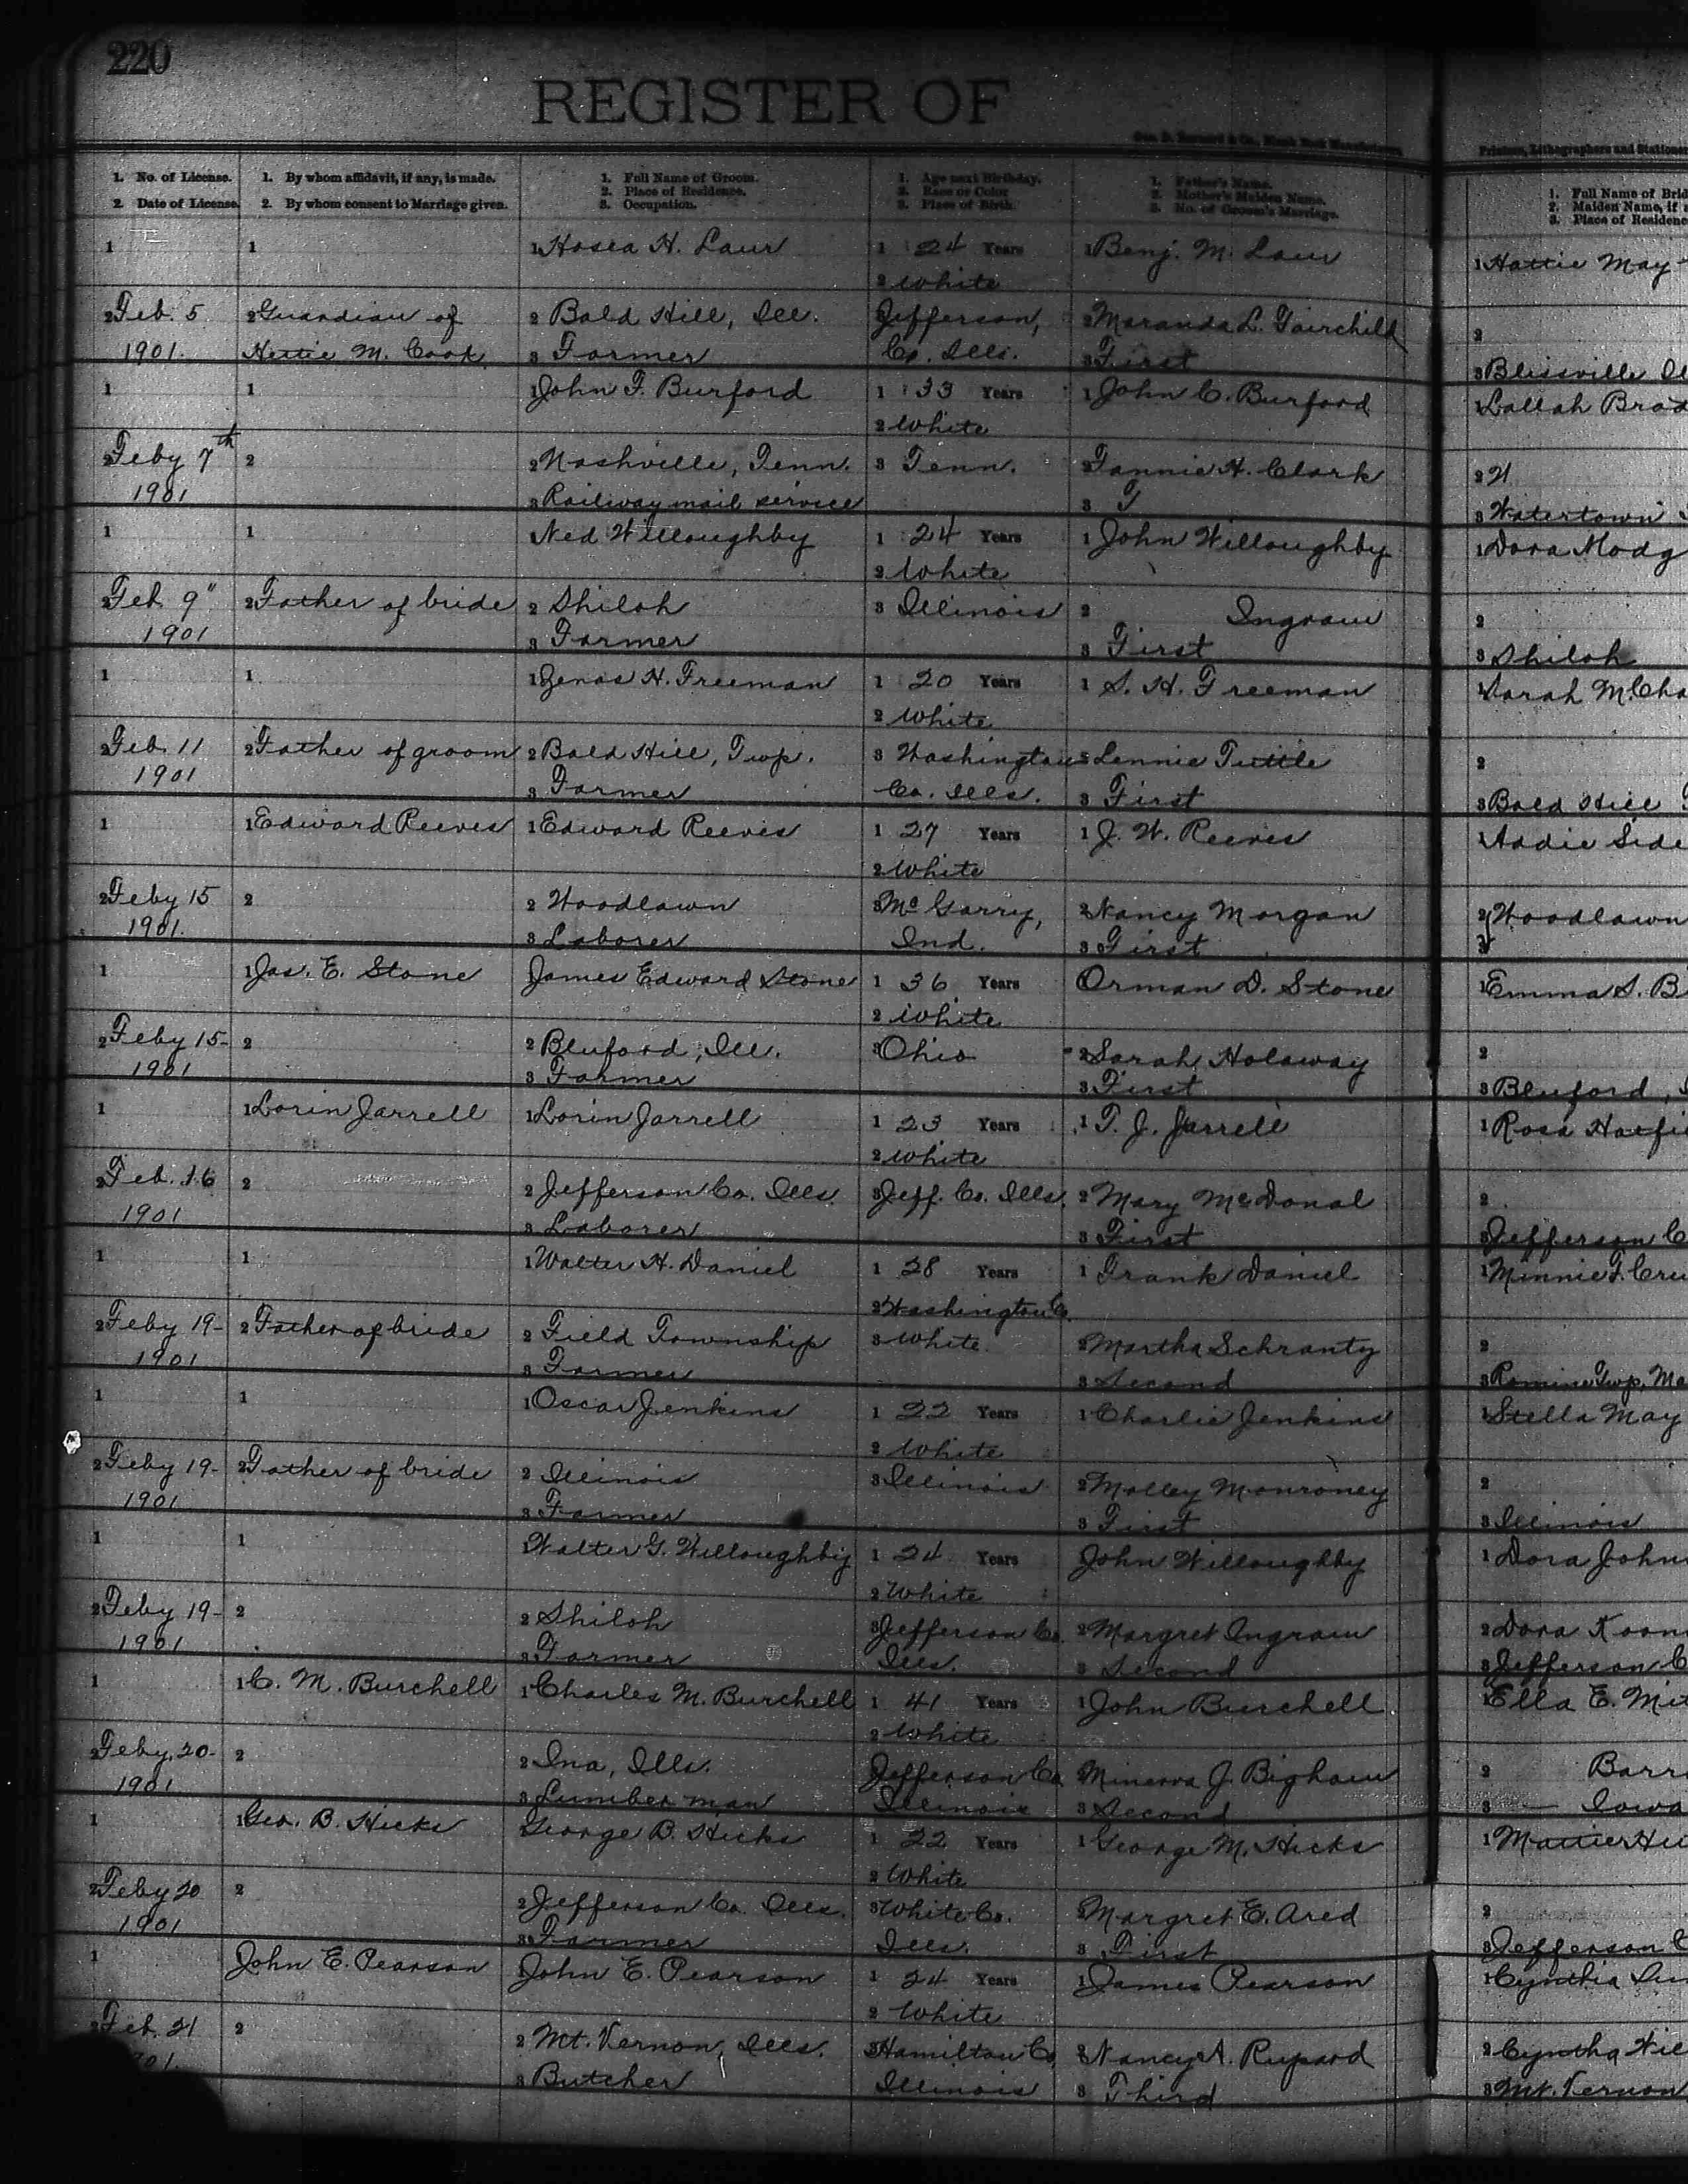 220
REGISTER OF
Printers, Lithographers and Stationers
1. No. of License.
2. Date of License.
1. By whom affidavit, if any, is made.
2. By whom consent to Marriage given.
1. Full Name of Groom.
2. Place of Residence.
3. Occupation.
1. Age next Birthday.
2. Race or Color
3. Place of Birth.
1. Father's Name.
2. Mother's Maiden Name.
3. No. of Groom's Marriage.
1. Full Name of Brid
2. Maiden Name, if a
3. Place of Residence
1 1 1 Hosea H. Laur 1 24 Years 1 Benj. M. Laur 1 Hattie May
2 White
2 Feb. 5 2 Guardian of 2 Bald Hill, Ill. Jefferson, 2 Maranda L. Fairchild 2
1901. Hettie M. Cook 3 Farmer Co. Ills. 3 First 3 Blissville
1 1 1 John F. Burford 1 33 Years 1 John C. Burford 1 Lallah Brad
2 White
2 Feby 7th 2 2 Nashville, Tenn. 3 Tenn. 2 Fannie H. Clark 2
1901 3 Railway mail service 3 F 3 Watertown
1 1 1 Ned Willoughby 1 24 Years 1 John Willoughby 1 Dora Hodg
2 White
2 Feb. 9" 2 Father of bride 2 Shiloh 3 Illinois 2 Ingram 2
1901 3 Farmer 3 First 3 Shiloh
1 1 1 Zenas H. Freeman 1 20 Years 1 S. H. Freeman 1 Sarah M. Cha
2 White
2 Feb. 11 2 Father of groom 2 Bald Hill, Twp. 3 Washington 2 Lennie Tuttle 2
1901 3 Farmer Co. Ills. 3 First 3 Bald Hill T
1 1 Edward Reeves 1 Edward Reeves 1 27 Years 1 J. W. Reeves 1 Addie Side
2 White
2 Feby 15 2 2 Woodlawn 3 McGarry, 2 Nancy Morgan 2 Woodlawn
1901. 3 Laborer Ind. 3 First 3
1 1 Jas. E. Stone James Edward Stone 1 36 Years Orman D. Stone 1 Emma S. B
2 White
2 Feby 15- 2 2 Bluford, Ill. 3 Ohio 2 Sarah Holaway 2
1901 3 Farmer 3 First 3 Bluford,
1 1 Lorin Jarrell 1 Lorin Jarrell 1 23 Years 1 T. J. Jarrell 1 Rosa Hatfi
2 White
2 Feb. 16 2 2 Jefferson Co. Ills. 3 Jeff. Co. Ills. 2 Mary McDonal 2
1901 3 Laborer 3 First 3 Jefferson C
1 1 1 Walter H. Daniel 1 28 Years 1 Frank Daniel 1 Minnie F. Cru
2 Washington Co.
2 Feby 19- 2 Father of bride 2 Field Township 3 White 2 Martha Schranty 2
1901 3 Farmer 3 Second 3 Romine Twp. Ma
1 1 1 Oscar Jenkins 1 22 Years 1 Charlie Jenkins 1 Stella May
2 White
2 Feby 19- 2 Father of bride 2 Illinois 3 Illinois 2 Molley Monroney 2
1901 3 Farmer 3 First 3 Illinois
1 1 1 Walter G. Willoughby 1 24 Years John Willoughby 1 Dora John
2 White
2 Feby 19- 2 2 Shiloh 3 Jefferson Co. 2 Margret Ingram 2 Dora Koon
1901 3 Farmer Ills. 3 Second 3 Jefferson C
1 1 C. M. Burchell 1 Charles M. Burchell 1 41 Years 1 John Burchell 1 Ella E. Mit
2 White
2 Feby. 20- 2 2 Ina, Ills. Jefferson Co. Minerva J. Bigham 2 Barr
1901 3 Lumber man Illinois 3 Second 3 Iowa
1 1 Geo. B. Hicks George B. Hicks 1 22 Years 1 George M. Hicks 1
2 White
2 Feby 20 2 2 Jefferson Co. Ills. 3 White Co. 2 Margret E. Ared 2
1901 3 Farmer Ills. 3 First 3 Jefferson C
1 John E. Pearson John E. Pearson 1 24 Years 1 James Pearson 1 Cynthia
2 White
2 Feb. 21 2 2 Mt. Vernon, Ills. 3 Hamilton Co. 2 Nancy A. Rupard 2 Cyntha
901. 3 Butcher Illinois 3 Third 3 Mt. Vernon